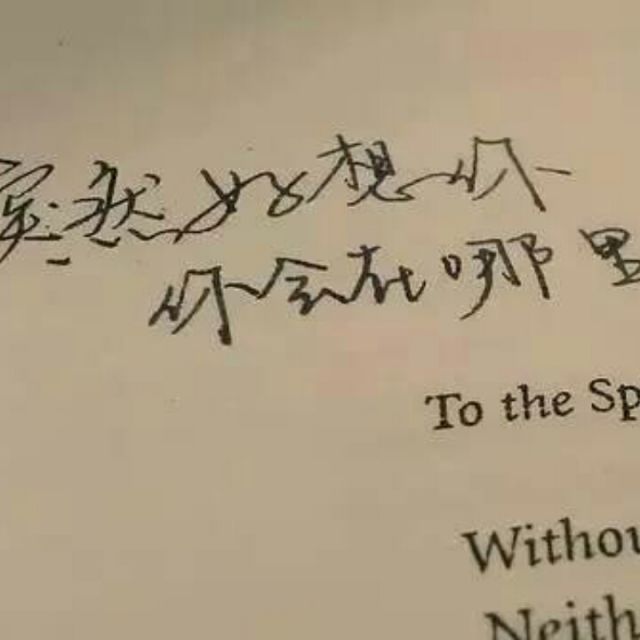 突然好想你
你会在哪里
To the Sp
Withou
Neith